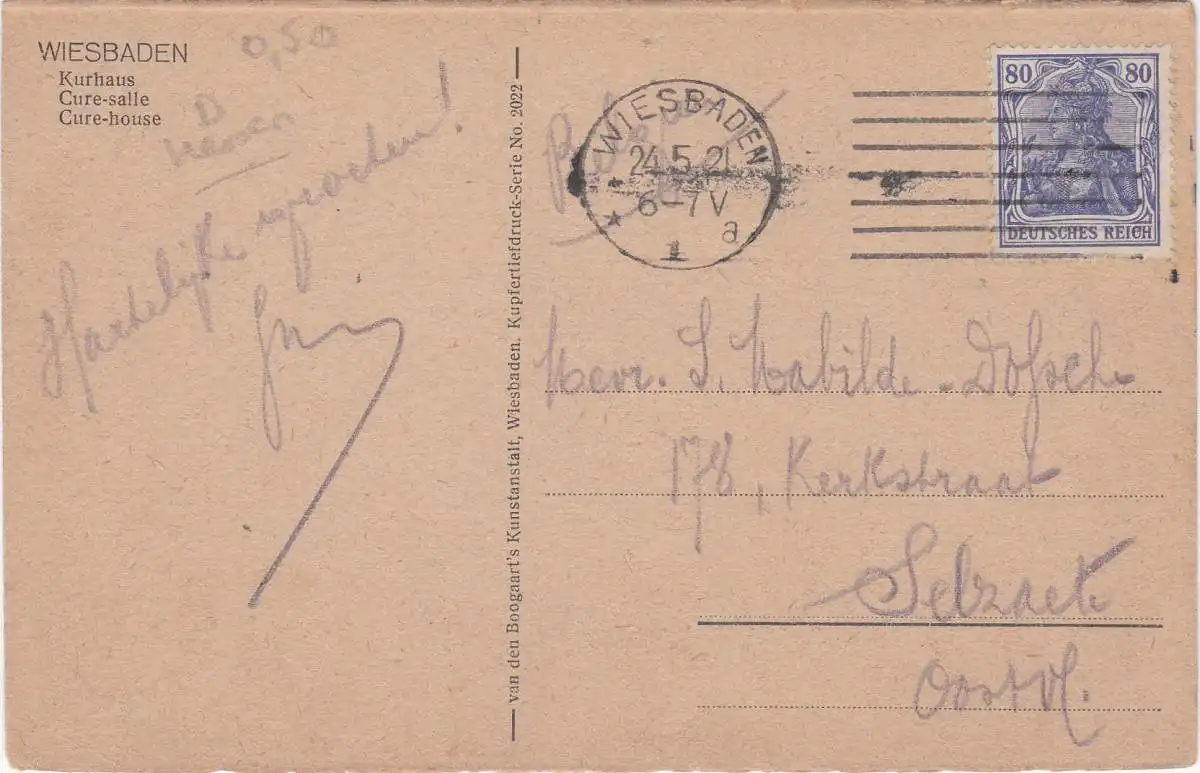 WIESBADEN
Kurhaus
Cure-salle
Cure-house
0,50
D
Hessen
Hartelijke groeten!
van den Boogaart's Kunstanstalt, Wiesbaden. Kupfertiefdruck-Serie No. 2022
WIESBADEN
24.5.21
6-7V
* 1 a
80 80
DEUTSCHES REICH
Mevr. S. Mabilde-Dossche
178, Kerkstraat
Selzaete
Oostvl.